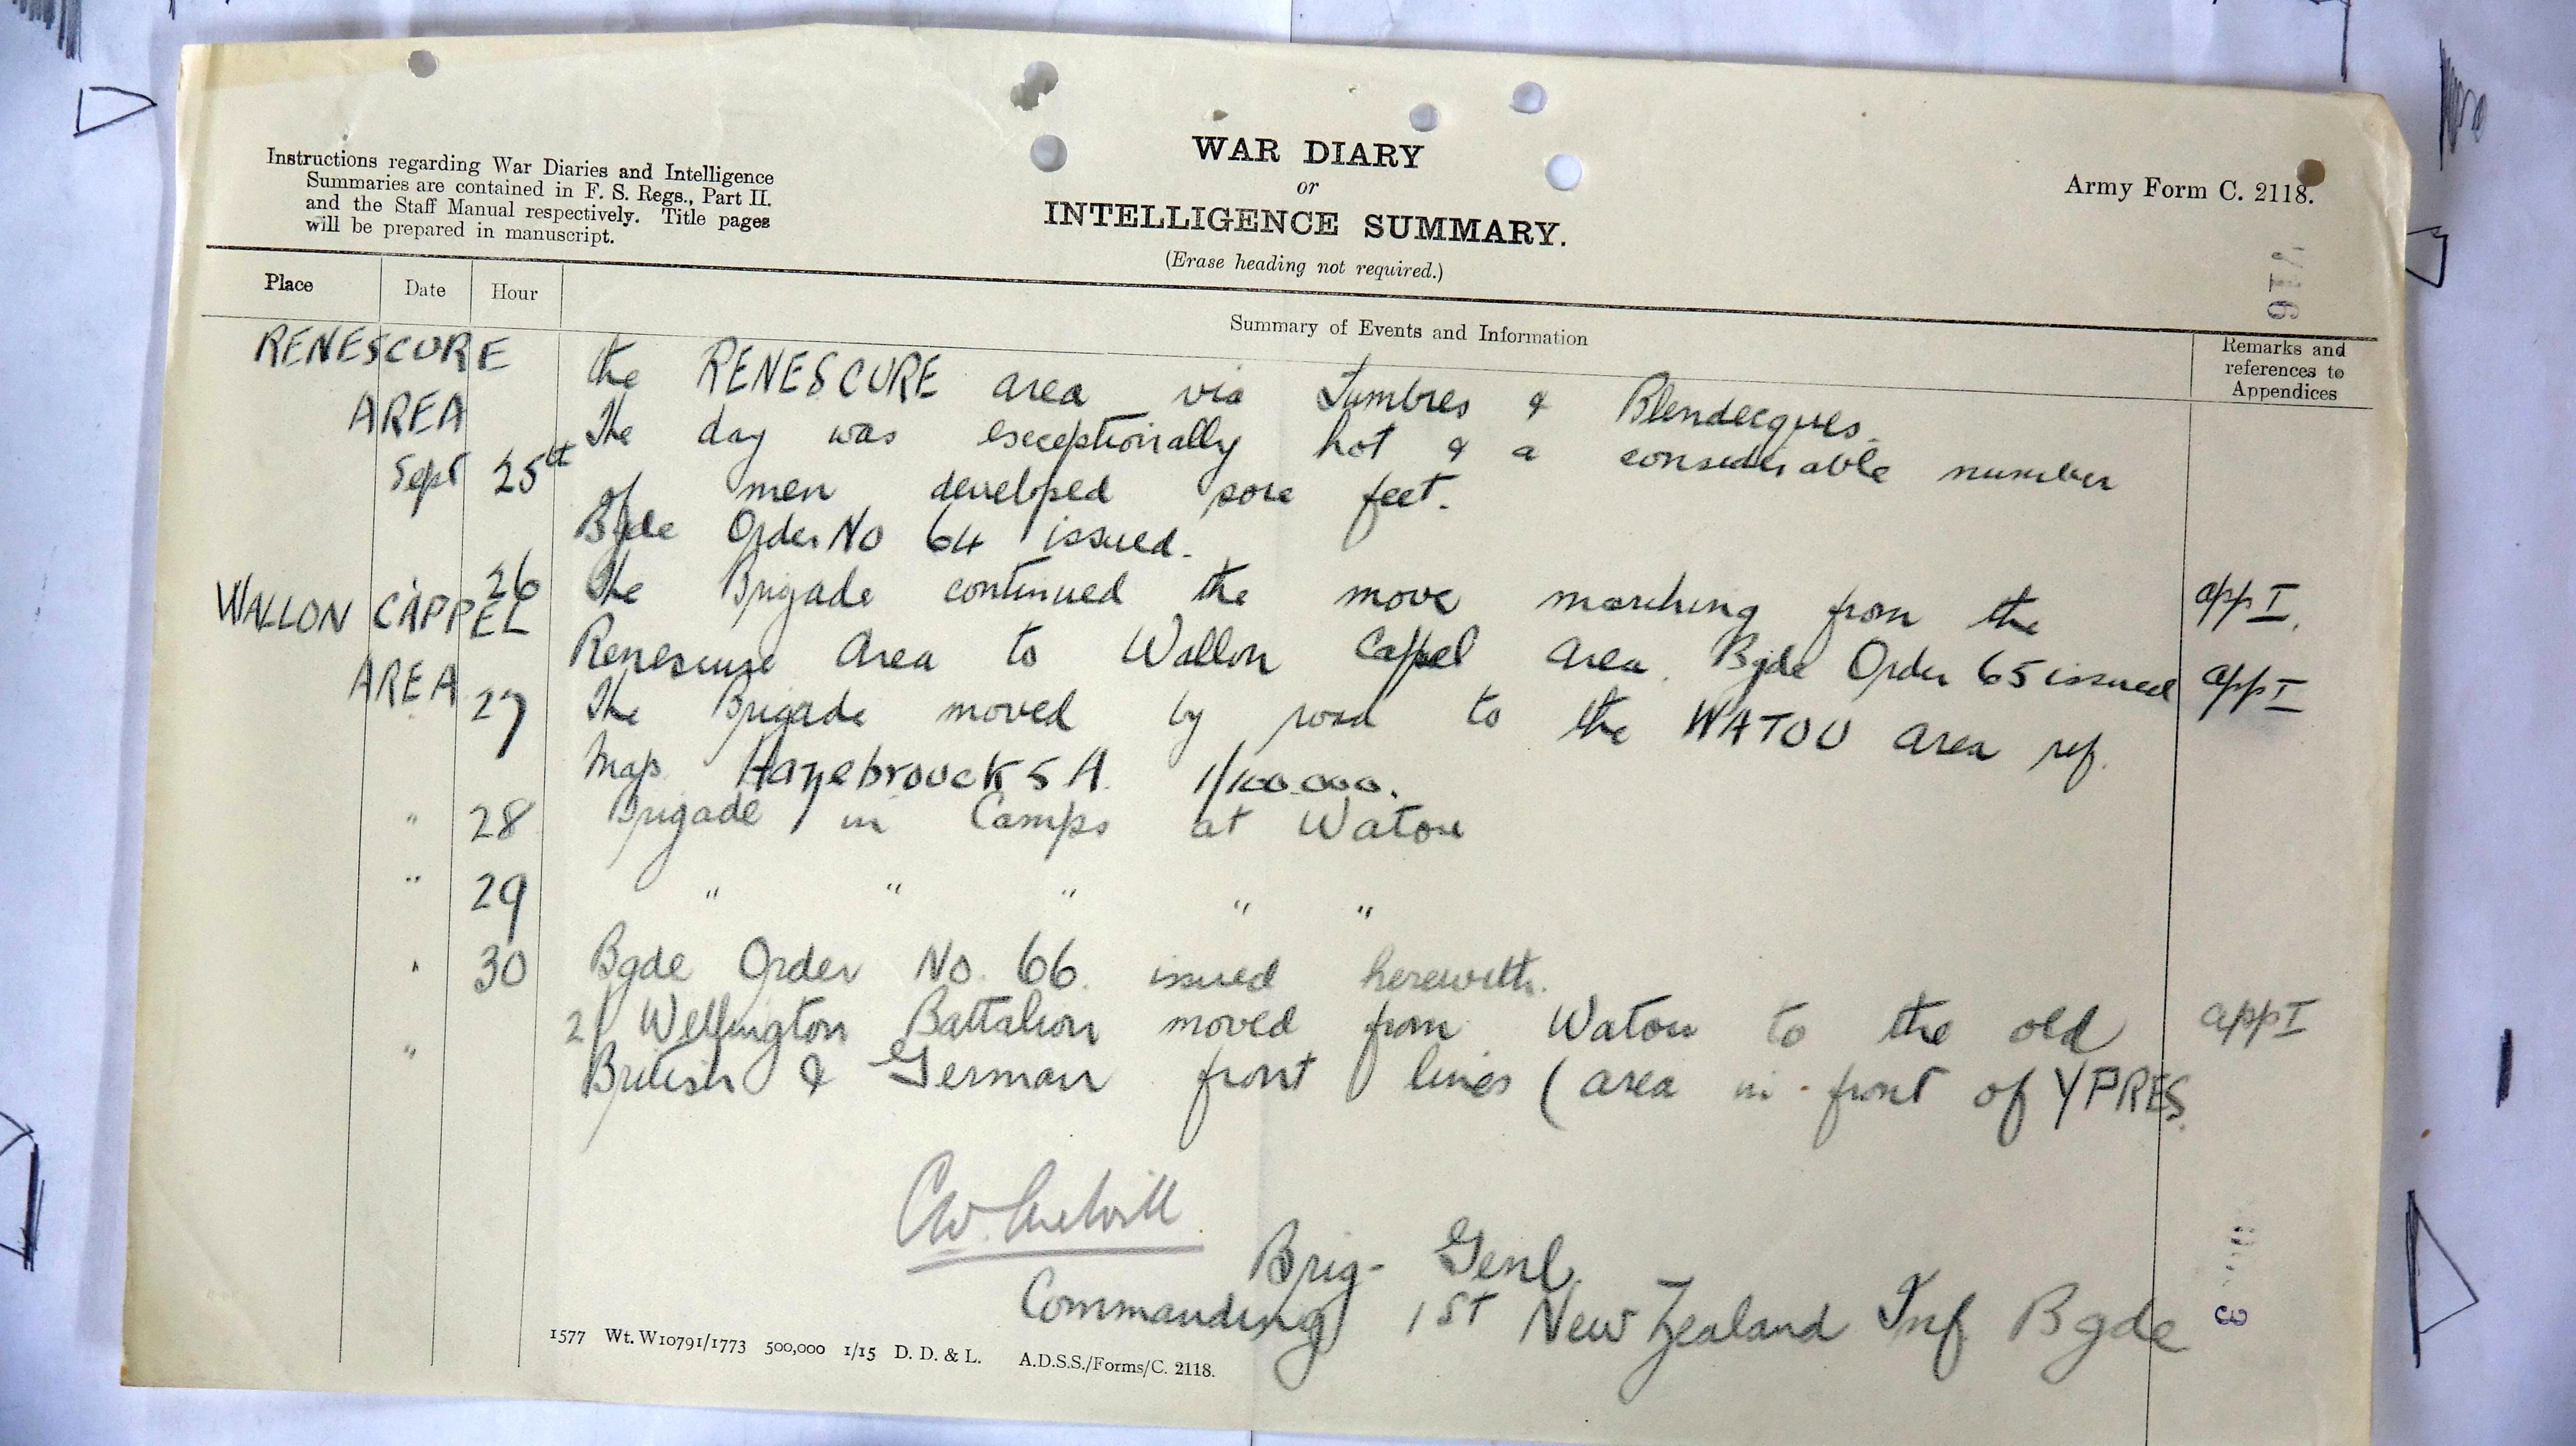 Instructions regarding War Diaries and Intelligence
Summaries are contained in F. S. Regs., Part II.
and the Staff Manual respectively. Title pages
will be prepared in manuscript.
WAR DIARY
or
INTELLIGENCE SUMMARY.
(Erase heading not required.)
Army Form C. 2118.
Place Date Hour
Summary of Events and Information
Remarks and
references to
Appendices
RENESCURE the RENESCURE area via Lumbres & Blendecques.
AREA The day was exceptionally hot & a considerable number
Sept 25th of men developed sore feet.
Bgde Order No 64 issued.
26 The Brigade continued the move marching from the app I.
WALLON CAPPEL Renescure Area to Wallon Cappel Area. Bgde Order 65 issued app I
AREA 27 The Brigade moved by road to the WATOU area ref.
Map Hazebrouck 5A. 1/100.000.
" 28 Brigade in Camps at Watou
" 29 " " " " "
" 30 Bgde Order No. 66. issued herewith. app I
" 2/ Wellington Battalion moved from Watou to the old
British & German front lines (area in front of YPRES.
Brig- Genl.
Commanding 1st New Zealand Inf Bgde
3
1577 Wt. W10791/1773 500,000 1/15 D. D. & L. A.D.S.S./Forms/C. 2118.